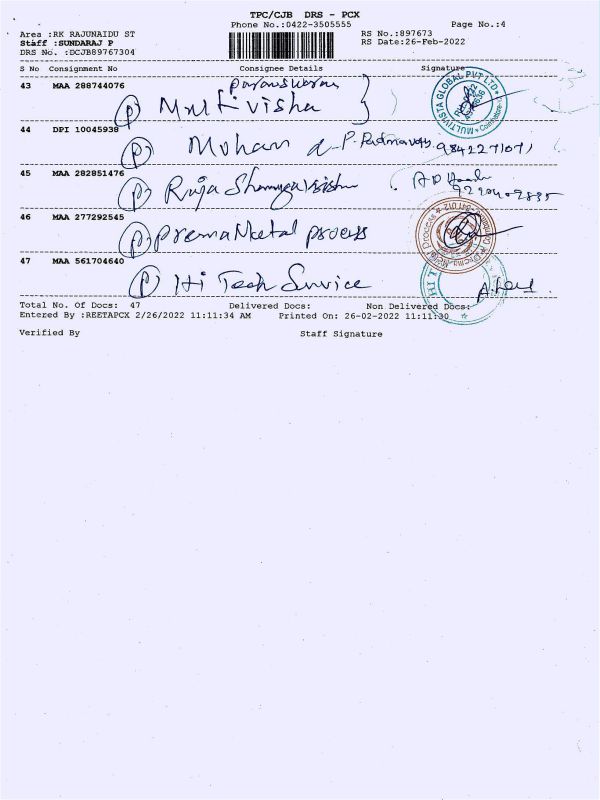 TPC/CJB DRS - PCX
Phone No.:0422-3505555 Page No.:4
Area :RK RAJUNAIDU ST RS No.:897673
Staff :SUNDARAJ P RS Date:26-Feb-2022
DRS No. :DCJB89767304
S No Consignment No Consignee Details Signature
43 MAA 288744076
(P) Multi visha
MULTIVISTA GLOBAL PVT LTD
44 DPI 10045938
(P) Mohan P. Padmavathy 9842271071
45 MAA 282851476
(P) Raja
46 MAA 277292545
(P) Prema Metal process
47 MAA 561704640
(P) Hi Tech Service
HI T
Total No. Of Docs: 47 Delivered Docs: Non Delivered Docs:
Entered By :REETAPCX 2/26/2022 11:11:34 AM Printed On: 26-02-2022 11:11:30
Verified By Staff Signature